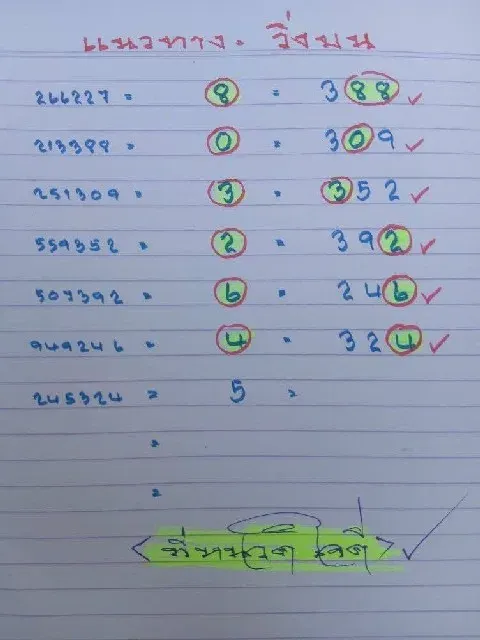 แนวทาง. วิ่งบน
266227 = 8 = 388 ✓
213388 = 0 = 309 ✓
251309 = 3 = 352 ✓
559352 = 2 = 392 ✓
507392 = 6 = 246 ✓
949246 = 4 = 324 ✓
245324 = 5 =
=
=